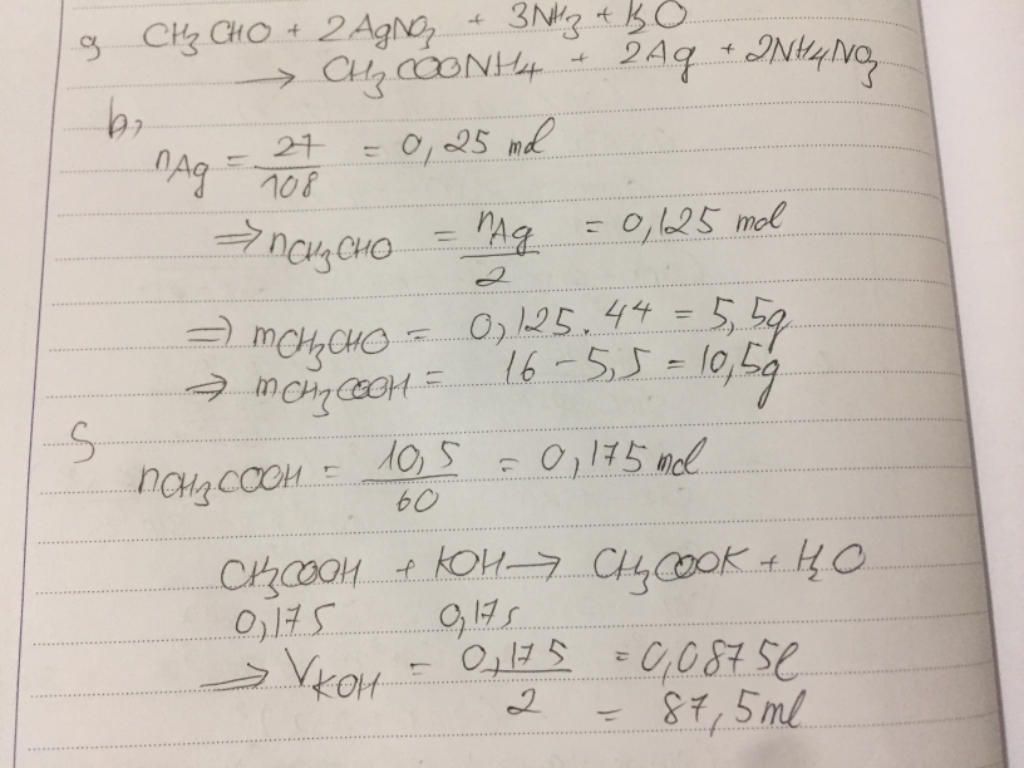 a, CH3CHO + 2AgNO3 + 3NH3 + H2O
→ CH3COONH4 + 2Ag + 2NH4NO3
b,
nAg = 27/108 = 0,25 mol
⇒ nCH3CHO = nAg/2 = 0,125 mol
⇒ mCH3CHO = 0,125.44 = 5,5g
⇒ mCH3COOH = 16 - 5,5 = 10,5g
c,
nCH3COOH = 10,5/60 = 0,175 mol
CH3COOH + KOH → CH3COOK + H2O
0,175 0,175
⇒ VKOH = 0,175/2 = 0,0875l
= 87,5ml